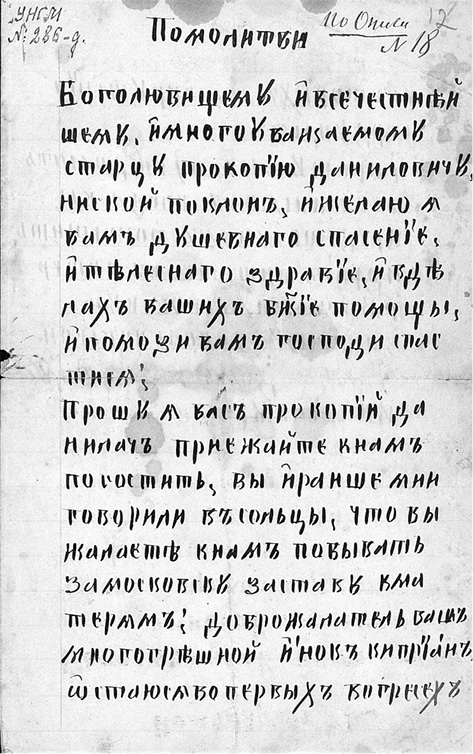 УНГМ
№ 286-д.
По Описи
№ 18
12
Помолитвы
Боголювищемꙋ и҆всечестнѣй
шемꙋ, и҆многоꙋважаемомꙋ
старцꙋ прокопїю даниловичꙋ,
ниской поклонъ, и҆желаю я
вамъ дꙋшевнаго спасенїе,
и҆тѣлеснаго здравїе, и҆вдѣ
лахъ вашихъ бж҃їе помощы,
и҆помози вамъ господи спас
тися;
Прошꙋ я васъ прокопїй да
нилачъ приежайте кнамъ
погостить, вы и҆ранше мни
говорили въсольцы, что вы
жалаетѣ кнамъ повывать
замосковскꙋ заставꙋ кма
терямъ; доброжалатель вашъ
многогрѣшной и҆нокъ кипрїа́нъ
ѿстаюсявопервыхъ вогресехъ